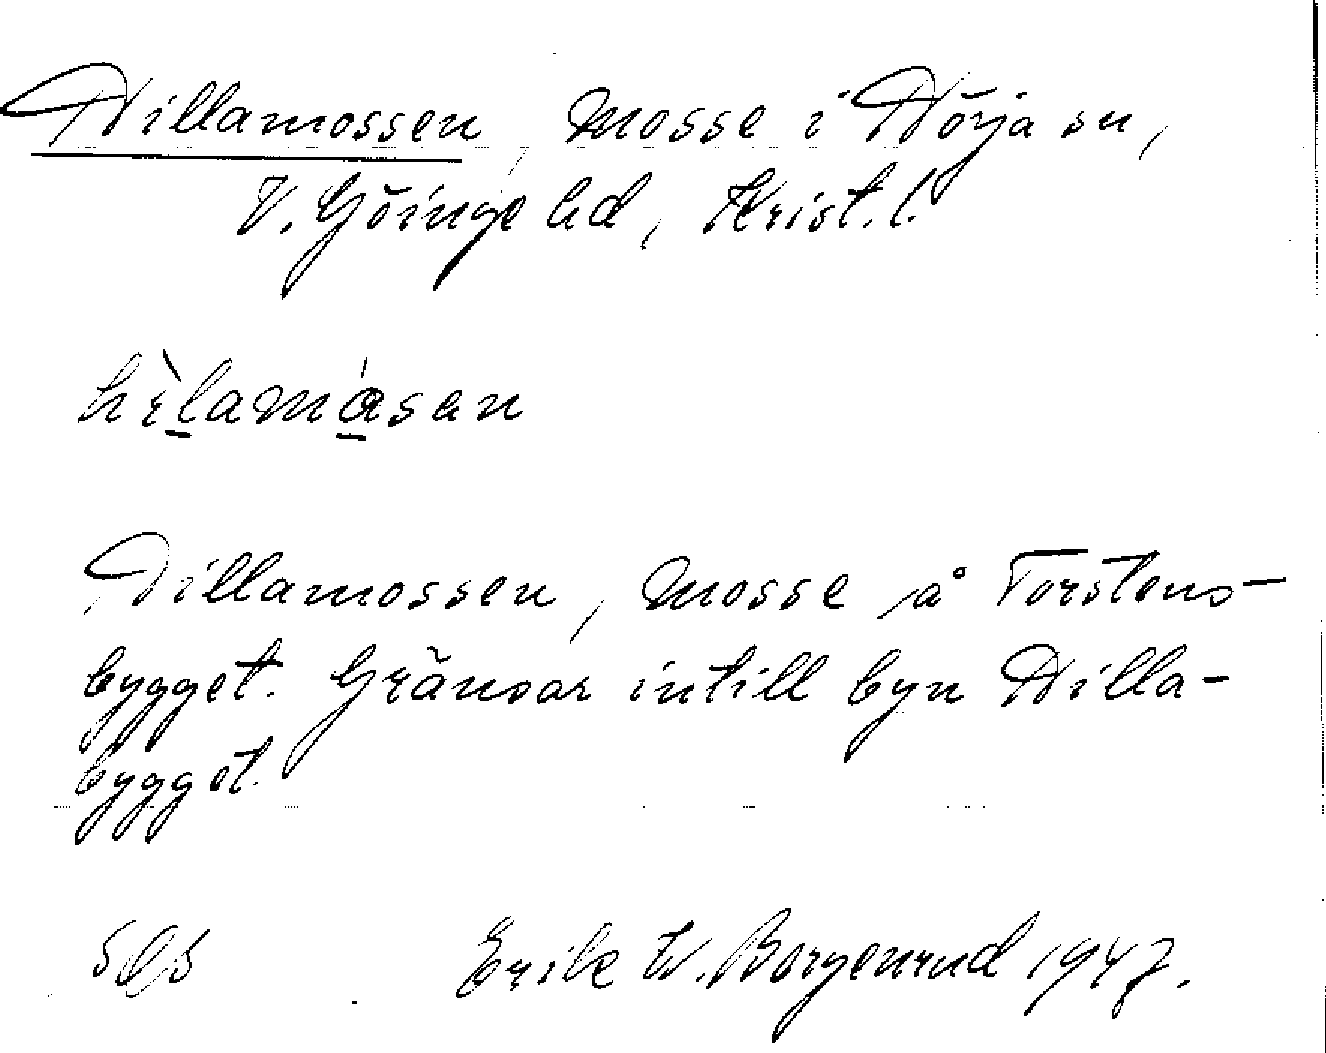 Hillamossen, mosse i Hörja sn,
V. Göinge hd, Krist. l.
hìlamåsan
Hillamossen, mosse å Torstens-
bygget. Gränsar intill byn Hilla-
bygget.
Erik W. Borgenrud 1947.